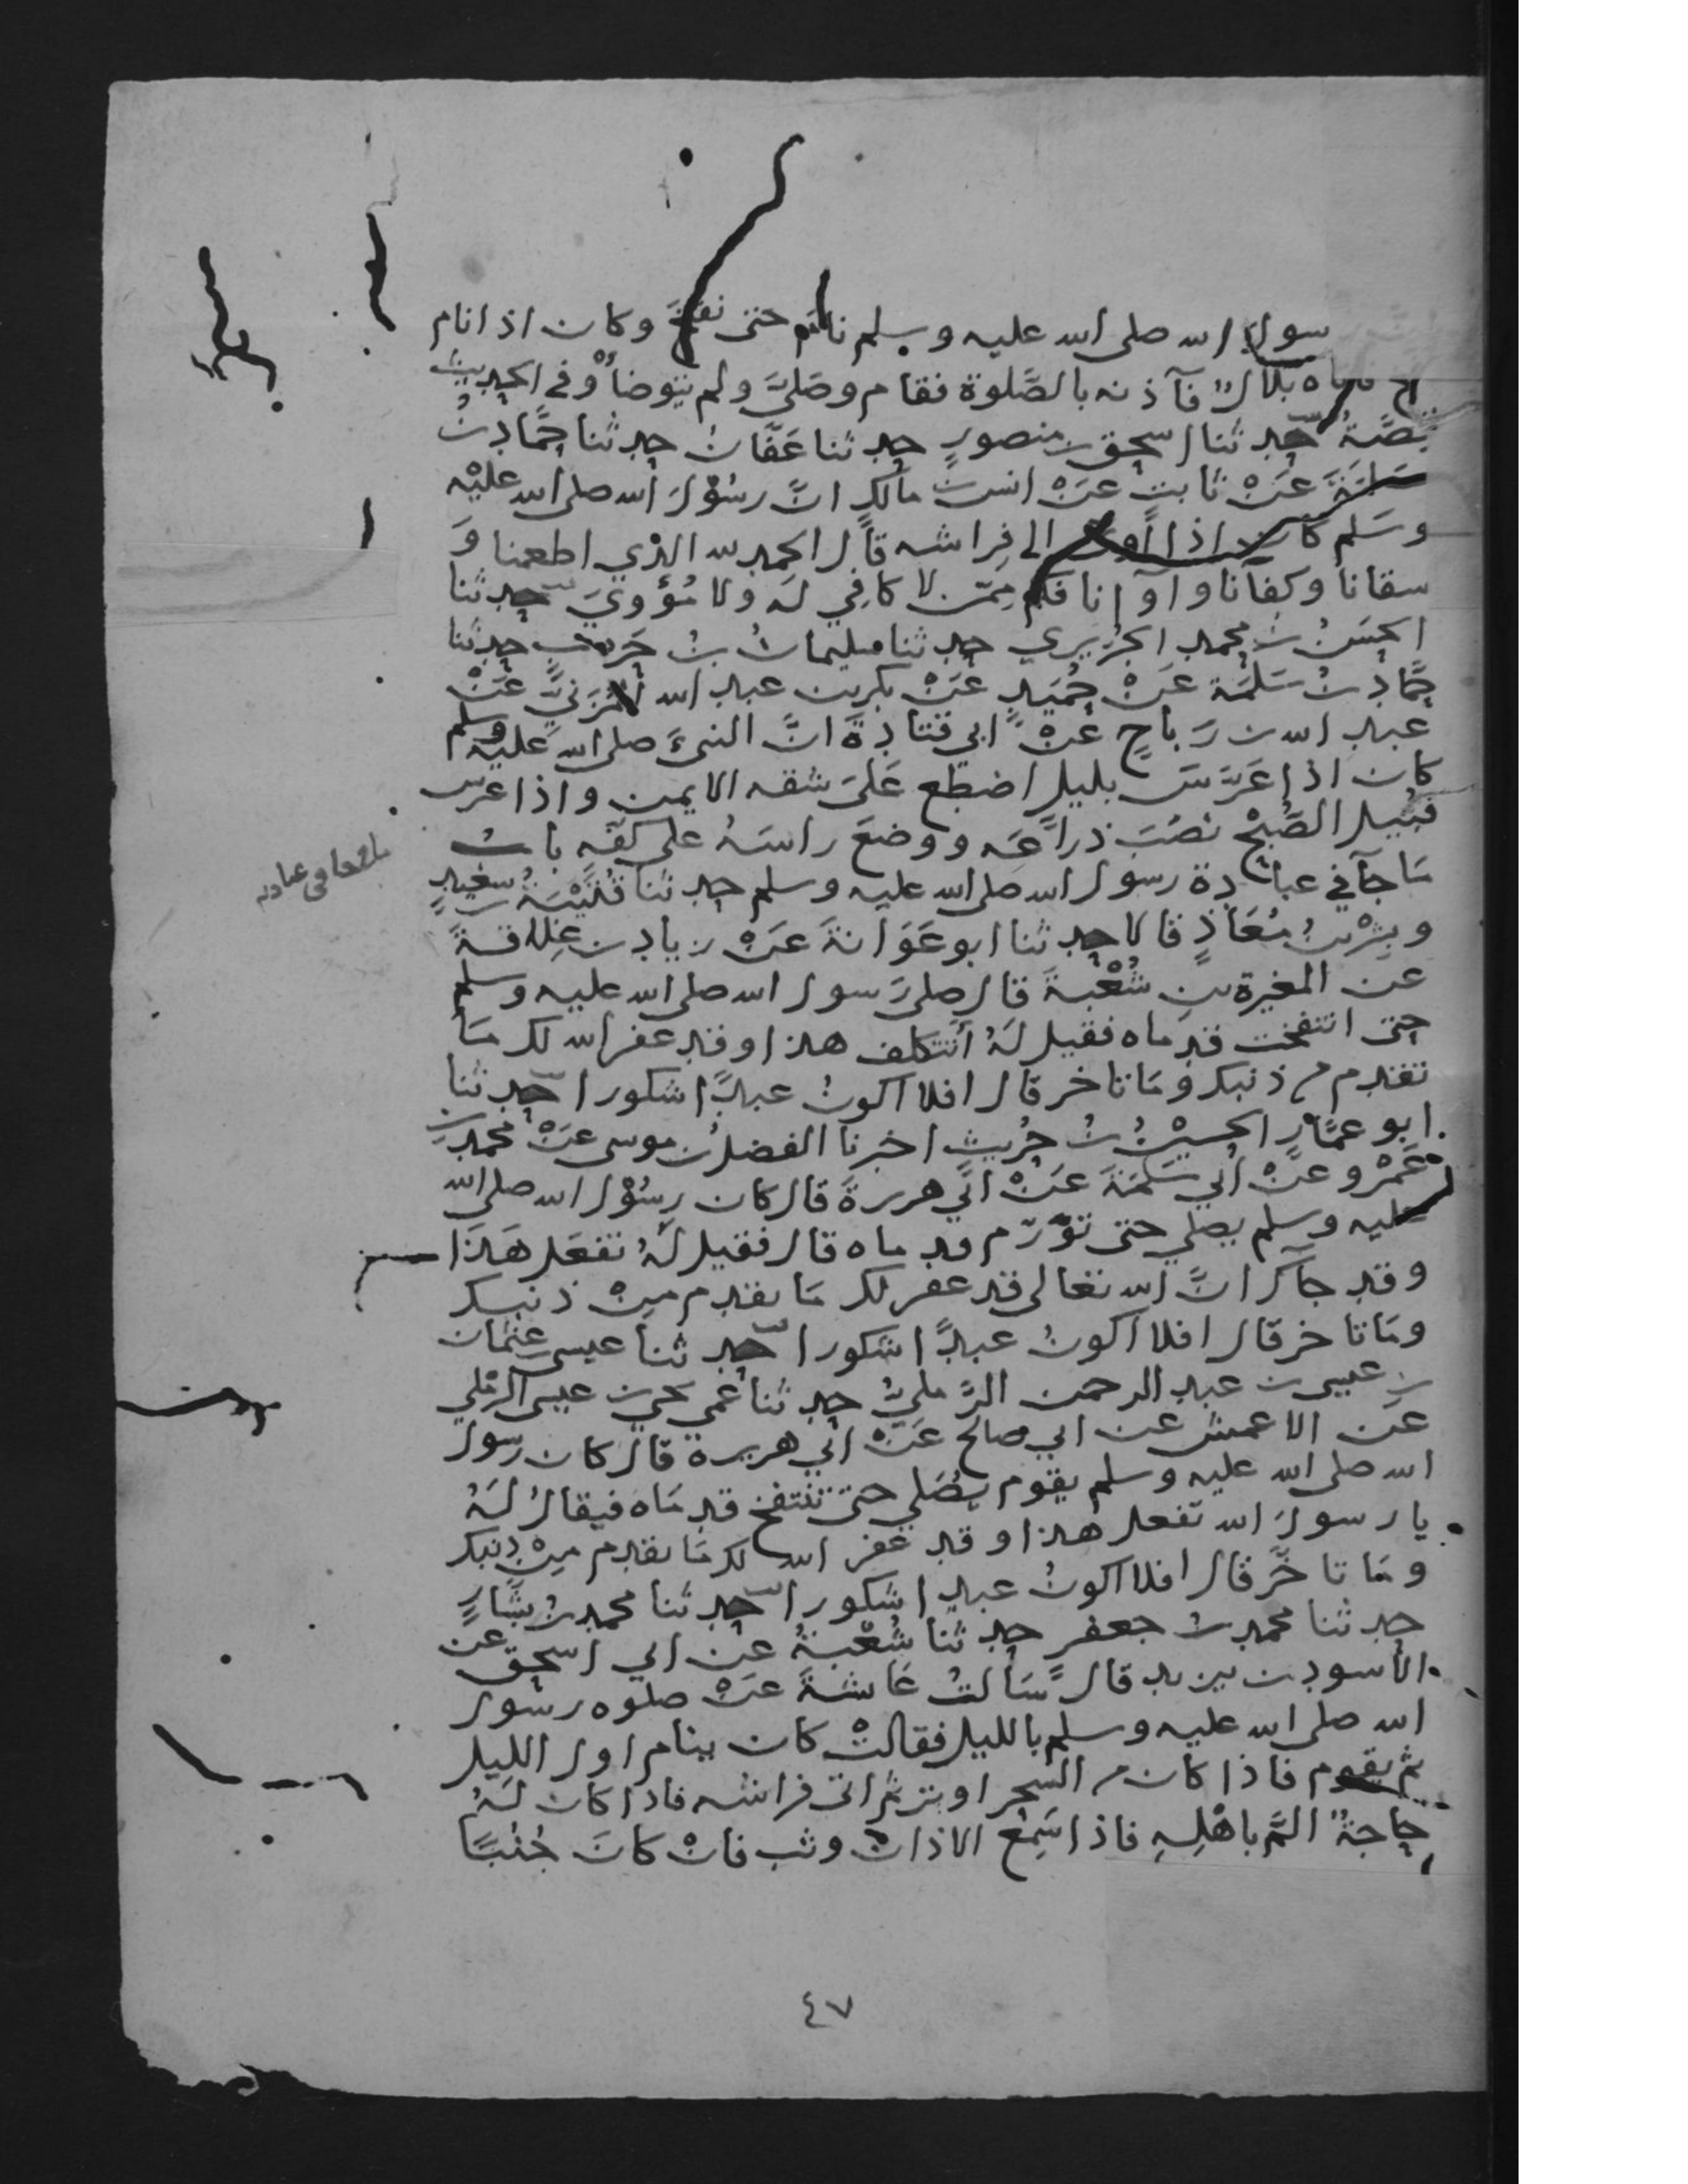 سول الله صلى الله عليه وسلم نام حتى نفخ وكان اذا نام
بلال فآذنه بالصَّلوة فقام وصَلىَّ ولم يتوضأ وفي الحديث
قصَّة حدثنا اسحق بن منصورٍ حدثنا عَفّان حدثنا حمَّاد بنُ
سَلمَةَ عَنْ ثابتٍ عَنْ انس بن مالكٍ انّ رسُوْلَ الله صلى الله عليْه
وسَلم كان اذا اوى الى فِراشه قال الحمد لله الذي اطعمنا وَ
سقانا وكفانا وآوانا فكم مِمّن لا كافي لَه ولا مُؤويَ حدثنا
الحسَنُ بن محمد الجُرَيري حدثنا سليمان بنُ حَرب حدثنا
حمَّاد بنُ سَلمَة عَنْ حُمَيدٍ عَنْ بكر بن عبد الله المُزَنيّ عَنْ
عبد الله بن رَباحٍ عَنْ ابي قتادةَ انَّ النبيَّ صلى الله عليه وسلم
كان اذا عَرَّسَ بليلٍ اضطجع عَلىَ شقه الايمن واذا عرس
قبُيل الصُبْح نصَبَ ذراعَه ووضعَ راسَهُ على كفّهِ بابُ
مَا جآ في عبادة رسول الله صلى الله عليه وسلم حدثنا قُتَيْبَة بن سعيدٍ
وبِشْر بنُ مُعَاذٍ قالا حدثنا ابو عَوَانةَ عَنْ زياد بن عِلاقةَ
عن المغيرة بن شُعْبةَ قال صلىَ رسول الله صلى الله عليه وسلم
حتى انتفخت قدماه فقيل لَهُ أتتكلف هذا وقد غفر الله لك مَا
تقدم من ذنبك ومَا تاخر قال افلا اكونُ عبدًا شكورا حدثنا
ابو عمَّارٍ الحسَيْنُ بنُ حُرَيثٍ اخبرنا الفضل بن موسى عَنْ محمد بن
عَمْرو عَنْ ابي سَلمَةَ عَنْ ابي هريرةَ قال كان رسُوْل الله صلى الله
عليه وسلم يصلي حتى تورّم قدماه قال فقيل لَهُ تفعَل هَذَا
وقد جآك انَّ الله تعالى قد غفر لك مَا تقدم مِنْ ذنبك
ومَا تاخر قال افلا اكونُ عبدًا شكورا حدثنا عيسى بن عثمان
بن عيسى بن عبد الرحمن الرَّمليُّ حدثنا عَمي يحيى بن عيسى الرَملي
عَن الاعمش عن ابي صالح عَنْ ابي هريرة قال كان رسول
الله صلى الله عليه وسلم يقوم يصَلي حتى تنتفخ قدمَاه فيقالُ لَهُ
يا رسولَ الله تفعل هذا وقد غفر الله لك مَا تقدم مِنْ ذنبك
ومَا تاخَّر قال افلا اكونُ عبدا شكورا حدثنا محمد بن بَشَّارٍ
حدثنا محمد بنُ جعفر حدثنا شُعْبَةُ عَن ابي اسحق عن
الاسود بن يزيد قال سَألتُ عَائشةَ عَنْ صلوه رسول
الله صلى الله عليه وسلم بالليل فقالتْ كان ينام اول الليل
ثم يقوم فاذا كان من السَحر اوتر ثم اتى فراشه فاذا كان لَهُ
حاجةٌ المَّ باهْلِهِ فاذا سَمِعَ الاذانَ وثب فانْ كانَ جُنُبًا
٤٧